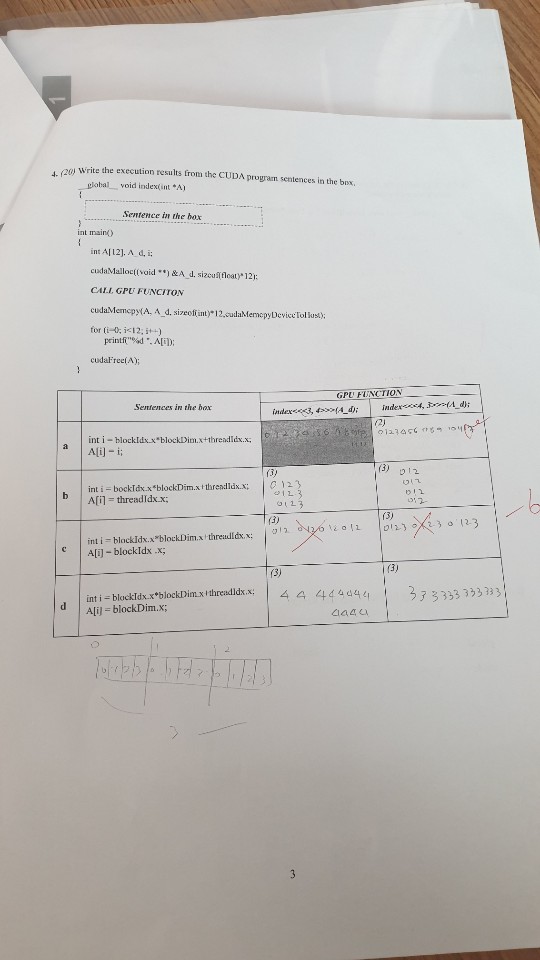 1
4. (20) Write the execution results from the CUDA program sentences in the box.
__global__ void index(int *A)
{
Sentence in the box
}
int main()
{
int A[12], A_d, i;
cudaMalloc((void **) &A_d, sizeof(float)*12);
CALL GPU FUNCITON
cudaMemcpy(A, A_d, sizeof(int)*12,cudaMemcpyDeviceToHost);
for (i=0; i<12; i++)
printf("%d ", A[i]);
cudaFree(A);
}
Sentences in the box
GPU FUNCTION
index<<<3, 4>>>(A_d);
index<<<4, 3>>>(A_d);
a
int i = blockIdx.x*blockDim.x+threadIdx.x;
A[i] = i;
(2)
b
int i = bockIdx.x*blockDim.x+threadIdx.x;
A[i] = threadIdx.x;
(3)
0123
0123
0123
(3) 012
012
012
012
-6
c
int i = blockIdx.x*blockDim.x+threadIdx.x;
A[i] = blockIdx .x;
(3)
012 012 012 012
(3)
0123 0123 0123
d
int i = blockIdx.x*blockDim.x+threadIdx.x;
A[i] = blockDim.x;
(3)
4 4 444444
4444
(3)
333333333333
0 1 2
0 1 2 3 0 1 2 3 0 1 2 3
3
3